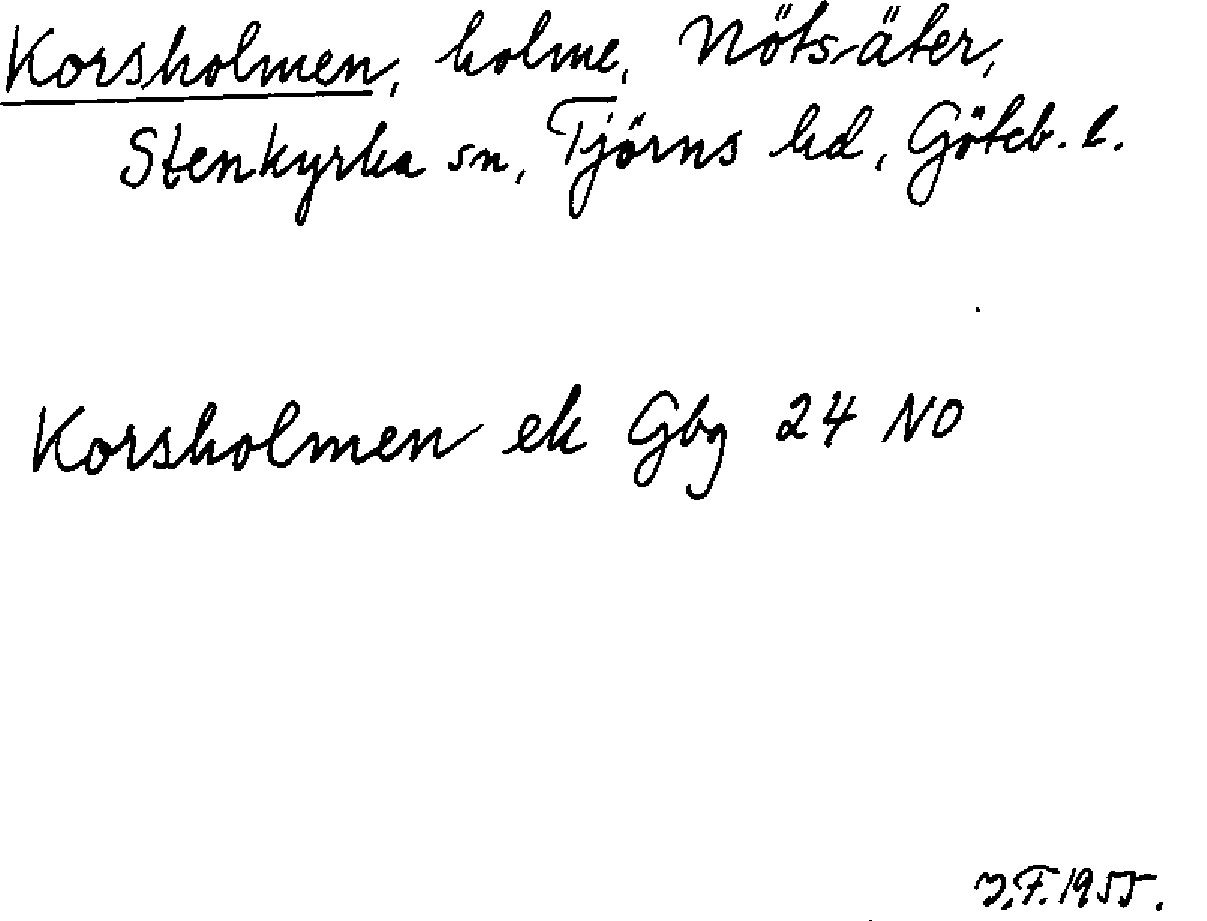 Korsholmen, holme, Nötsäter,
Stenkyrka sn, Tjörns hd, Göteb. l.
Korsholmen ek Gbg 24 NO
J.F. 1955.